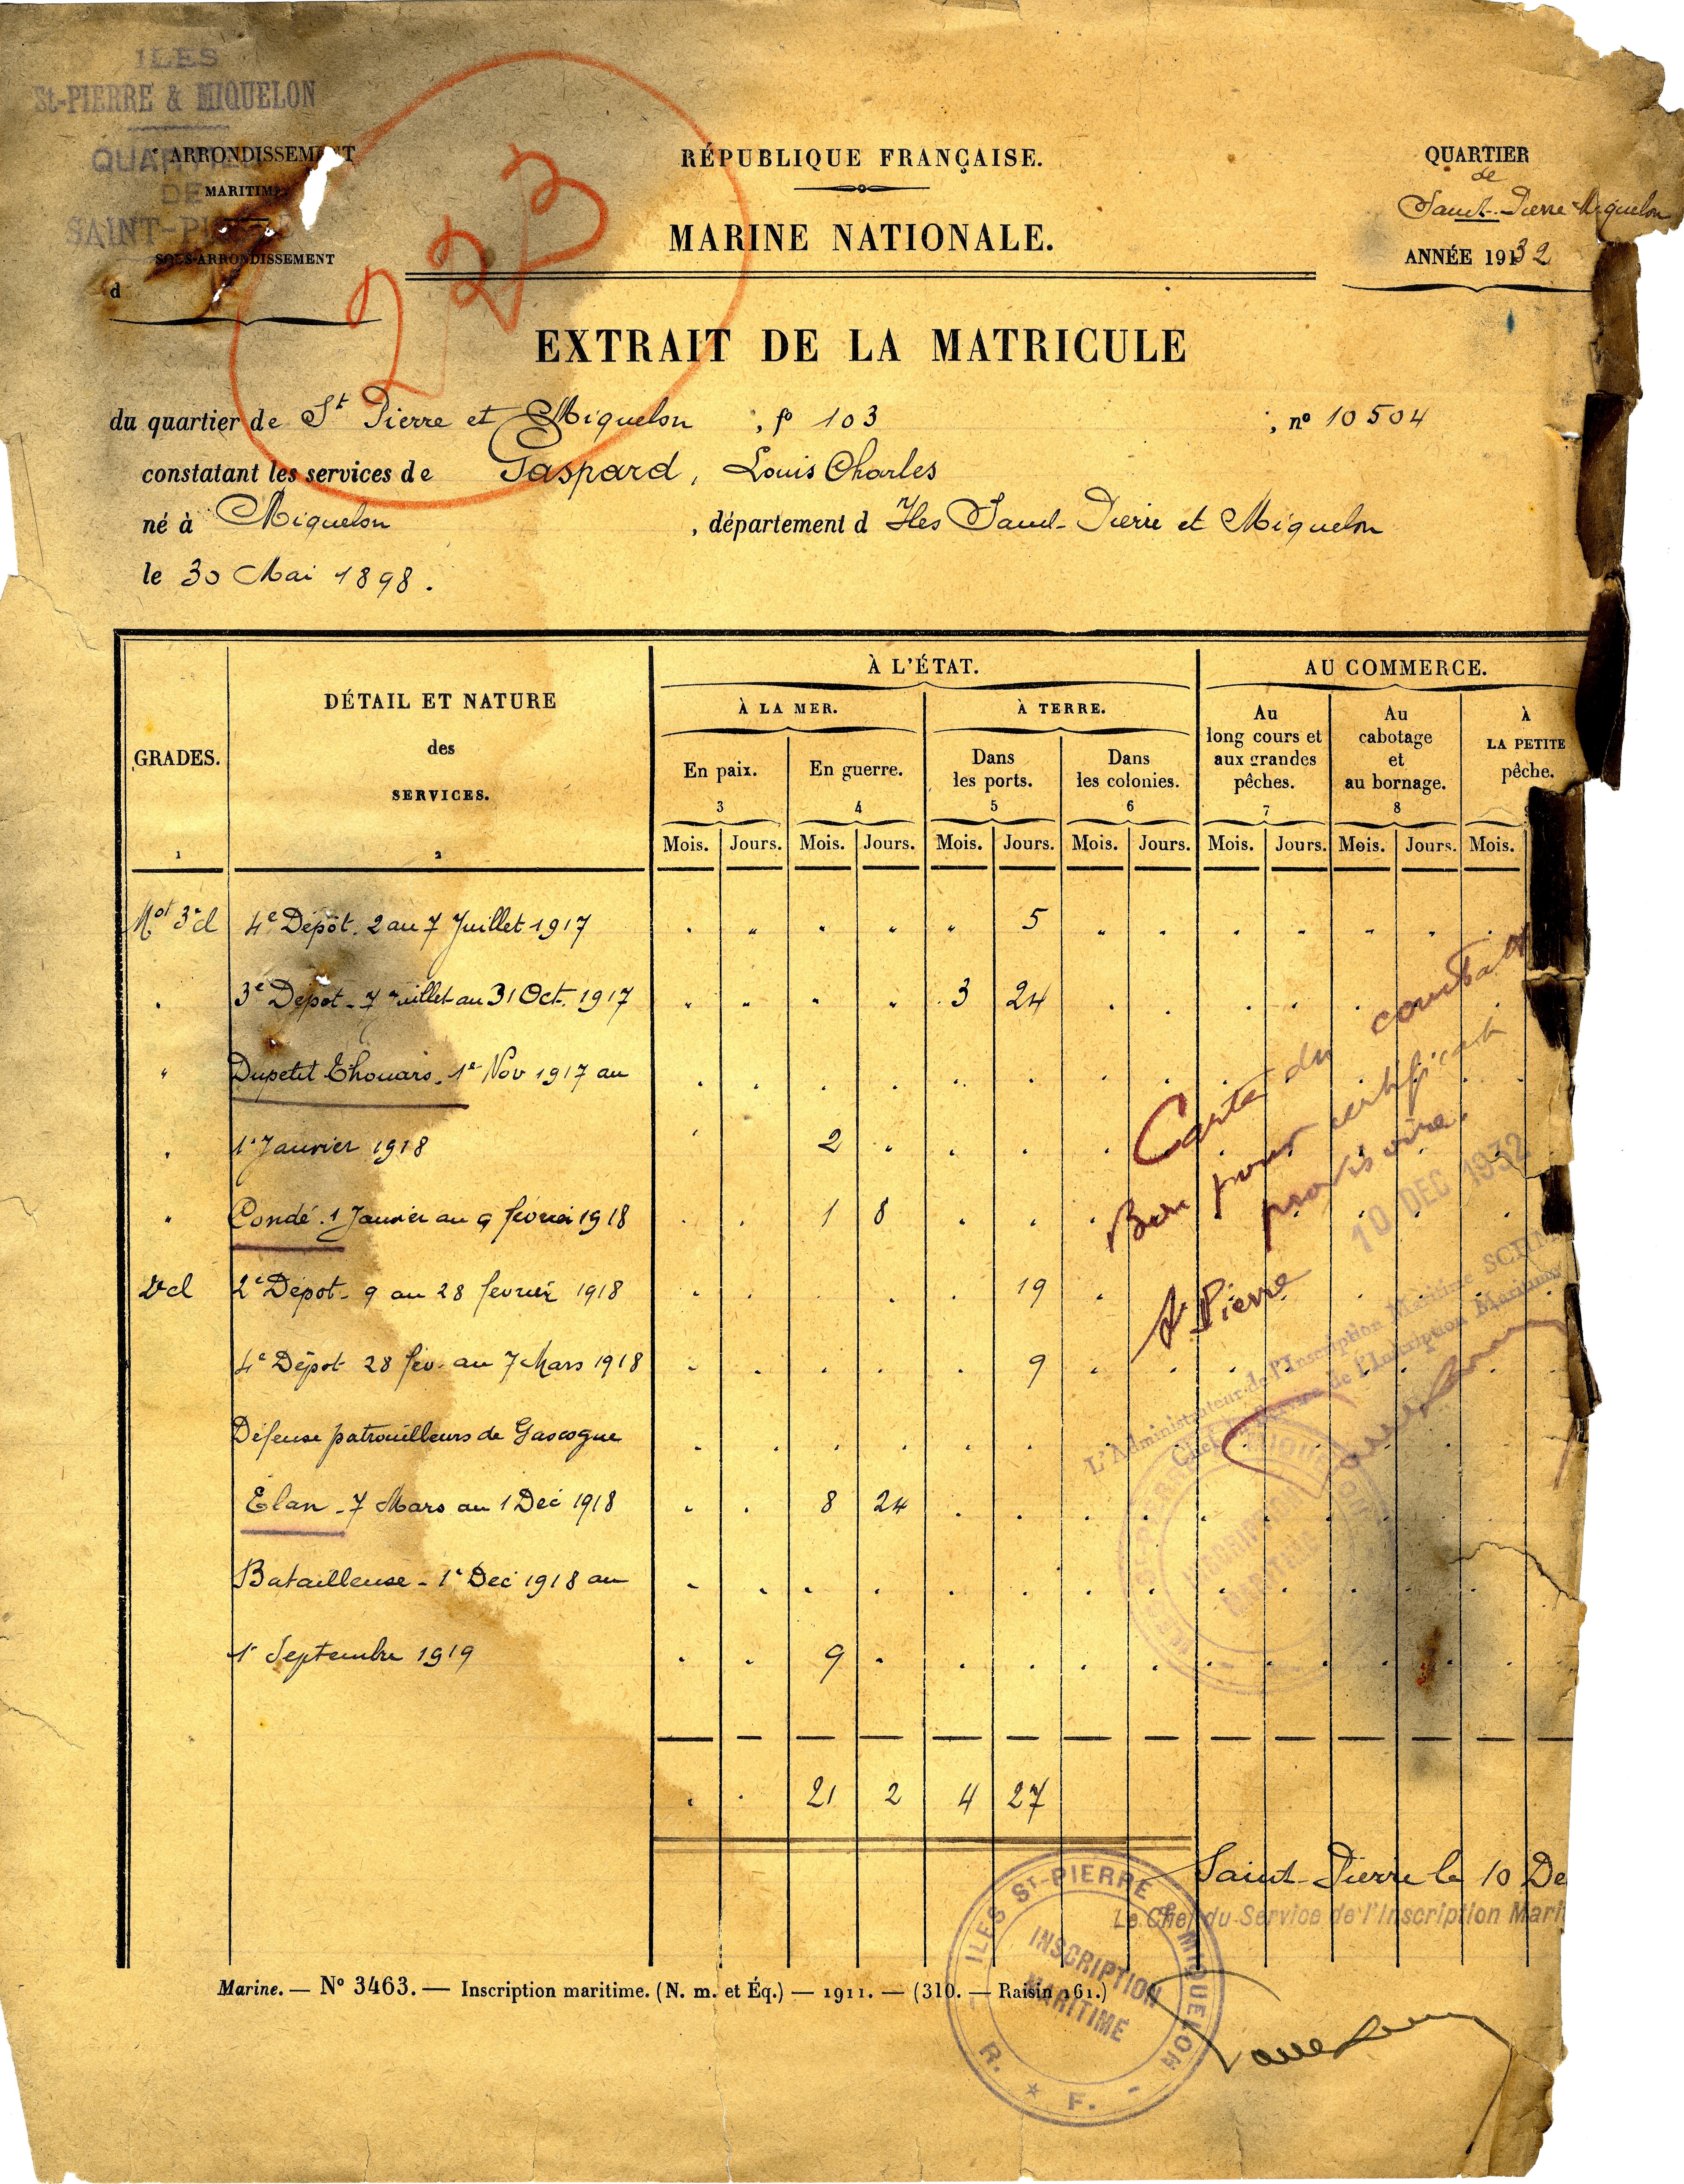 ILES
St-PIERRE & MIQUELON
QUARTIER
DE
SAINT-PIERRE
ARRONDISSEMENT
MARITIME
SOUS-ARRONDISSEMENT
d
223
RÉPUBLIQUE FRANÇAISE.
MARINE NATIONALE.
QUARTIER
de
Saint-Pierre Miquelon
ANNÉE 1932
EXTRAIT DE LA MATRICULE
du quartier de St Pierre et Miquelon , fo 103 ; no 10504
constatant les services de Gaspard, Louis Charles
né à Miquelon , département d Iles Saint-Pierre et Miquelon
le 30 Mai 1898.
GRADES.
1
DÉTAIL ET NATURE
des
SERVICES.
2
À L'ÉTAT.
AU COMMERCE.
À LA MER.
À TERRE.
En paix.
3
En guerre.
4
Dans
les ports.
5
Dans
les colonies.
6
Au
long cours et
aux grandes
pêches.
7
Au
cabotage
et
au bornage.
8
À
LA PETITE
pêche.
Mois. Jours. Mois. Jours. Mois. Jours. Mois. Jours. Mois. Jours. Mois. Jours. Mois.
Mot 3e cl 4e Dépôt. 2 au 7 Juillet 1917 5
3e Dépot - 7 Juillet au 31 Oct. 1917 3 24
Dupetit Thouars. 1er Nov 1917 au
1er Janvier 1918 2
Condé. 1 Janvier au 9 février 1918 1 8
2e cl 2e Dépot - 9 au 28 février 1918 19
4e Dépot 28 fév. au 7 Mars 1918 9
Défense patrouilleurs de Gascogne
Élan - 7 Mars au 1 Déc 1918 8 24
Batailleuse - 1er Dec 1918 au
1er Septembre 1919 9
21 2 4 27
Carte du combatt
Bon pour certificat
provisoire.
10 DEC 1932
St Pierre
L'Administrateur de l'Inscription Maritime
Chef du Service de l'Inscription Maritime
ILES ST-PIERRE & MIQUELON
INSCRIPTION
MARITIME
Saint-Pierre le 10 De
Le Chef du Service de l'Inscription Mari
ILES ST-PIERRE & MIQUELON
INSCRIPTION
MARITIME
R. F.
Marine. — No 3463. — Inscription maritime. (N. m. et Éq.) — 1911. — (310. — Raisin 161.)